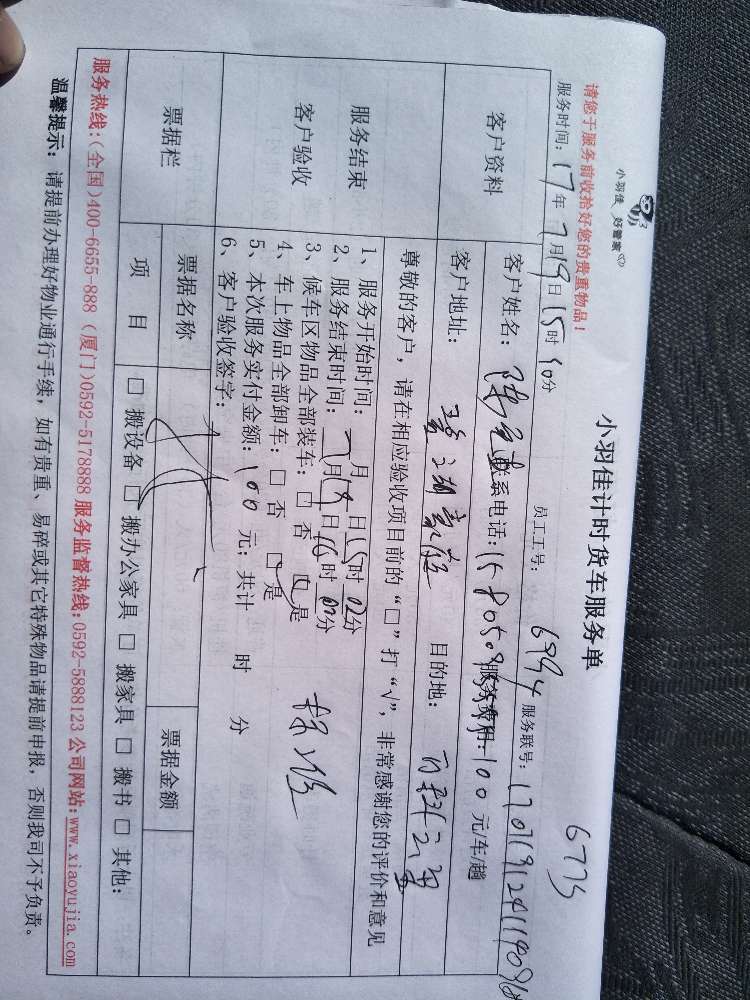 小羽佳 好管家
小羽佳计时货车服务单
6775
请您于服务前收拾好您的贵重物品！
服务时间：17年7月19日15时40分 员工工号：6994 服务联号：
客户资料
客户姓名： 联系电话： 服务费用：100元/车/趟
客户地址： 目的地：
尊敬的客户，请在相应验收项目前的“□”打“√”，非常感谢您的评价和意见
服务结束
客户验收
1、服务开始时间： 月 日15时02分
2、服务结束时间：7月19日16时02分
3、候车区物品全部装车：□ 否 □ 是
4、车上物品全部卸车：□ 否 □ 是
5、本次服务实付金额：100 元；共计 时 分
6、客户验收签字：
票据栏
票据名称 票据金额
项 目 □ 搬设备 □ 搬办公家具 □ 搬家具 □ 搬书 □ 其他：
服务热线：(全国)400-6655-888 (厦门)0592-5178888 服务监督热线：0592-5888123 公司网站：www.xiaoyujia.com
温馨提示：请提前办理好物业通行手续，如有贵重、易碎或其它特殊物品请提前申报，否则我司不予负责。